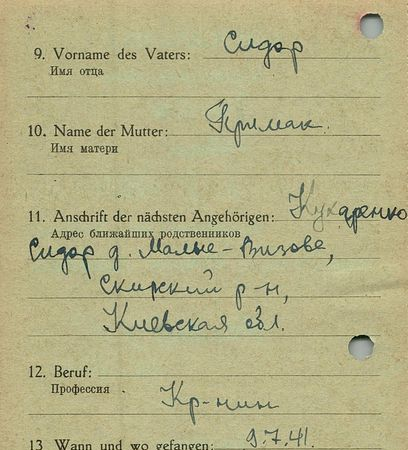 9. Vorname des Vaters: Сидор
Имя отца
10. Name der Mutter: Примак.
Имя матери
11. Anschrift der nächsten Angehörigen: Кухаренко
Адрес ближайших родственников
Сидор д. Малые-Визове,
Скирский р-н,
Киевская обл.
12. Beruf:
Профессия
Кр-нин
13 Wann und wo gefangen: 9.7.41.